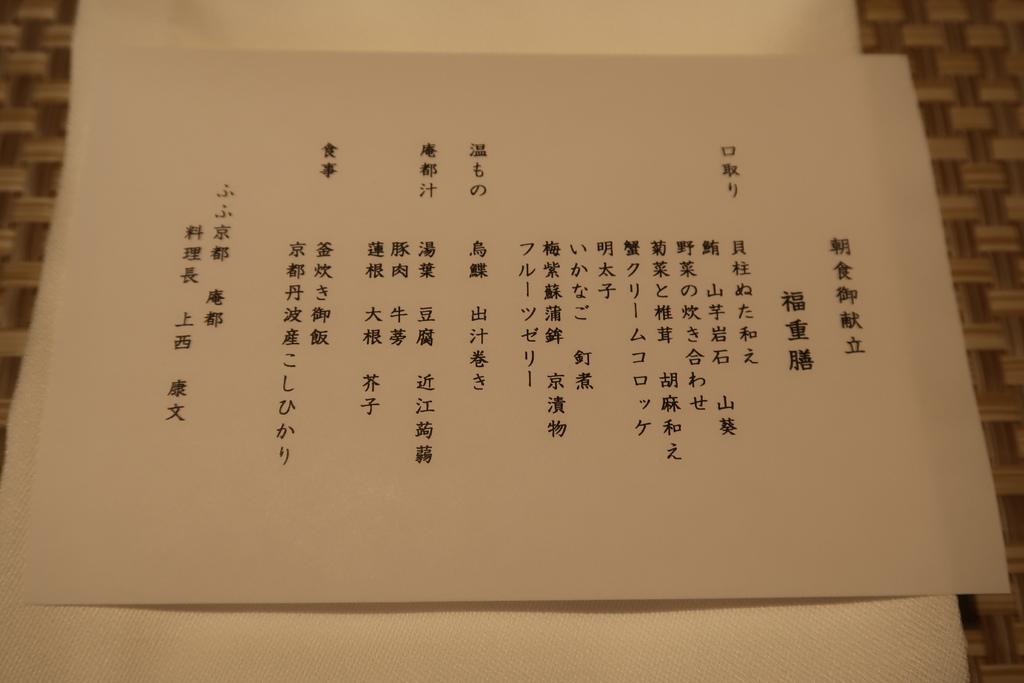 朝食御献立
福重膳
口取り
貝柱ぬた和え
鮪 山芋岩石 山葵
野菜の炊き合わせ
菊菜と椎茸 胡麻和え
蟹クリームコロッケ
明太子
いかなご 釘煮
梅紫蘇蒲鉾 京漬物
フルーツゼリー
温もの
烏鰈 出汁巻き
庵都汁
湯葉 豆腐 近江蒟蒻
豚肉 牛蒡
蓮根 大根 芥子
食事
釜炊き御飯
京都丹波産こしひかり
ふふ京都 庵都
料理長 上西 康文